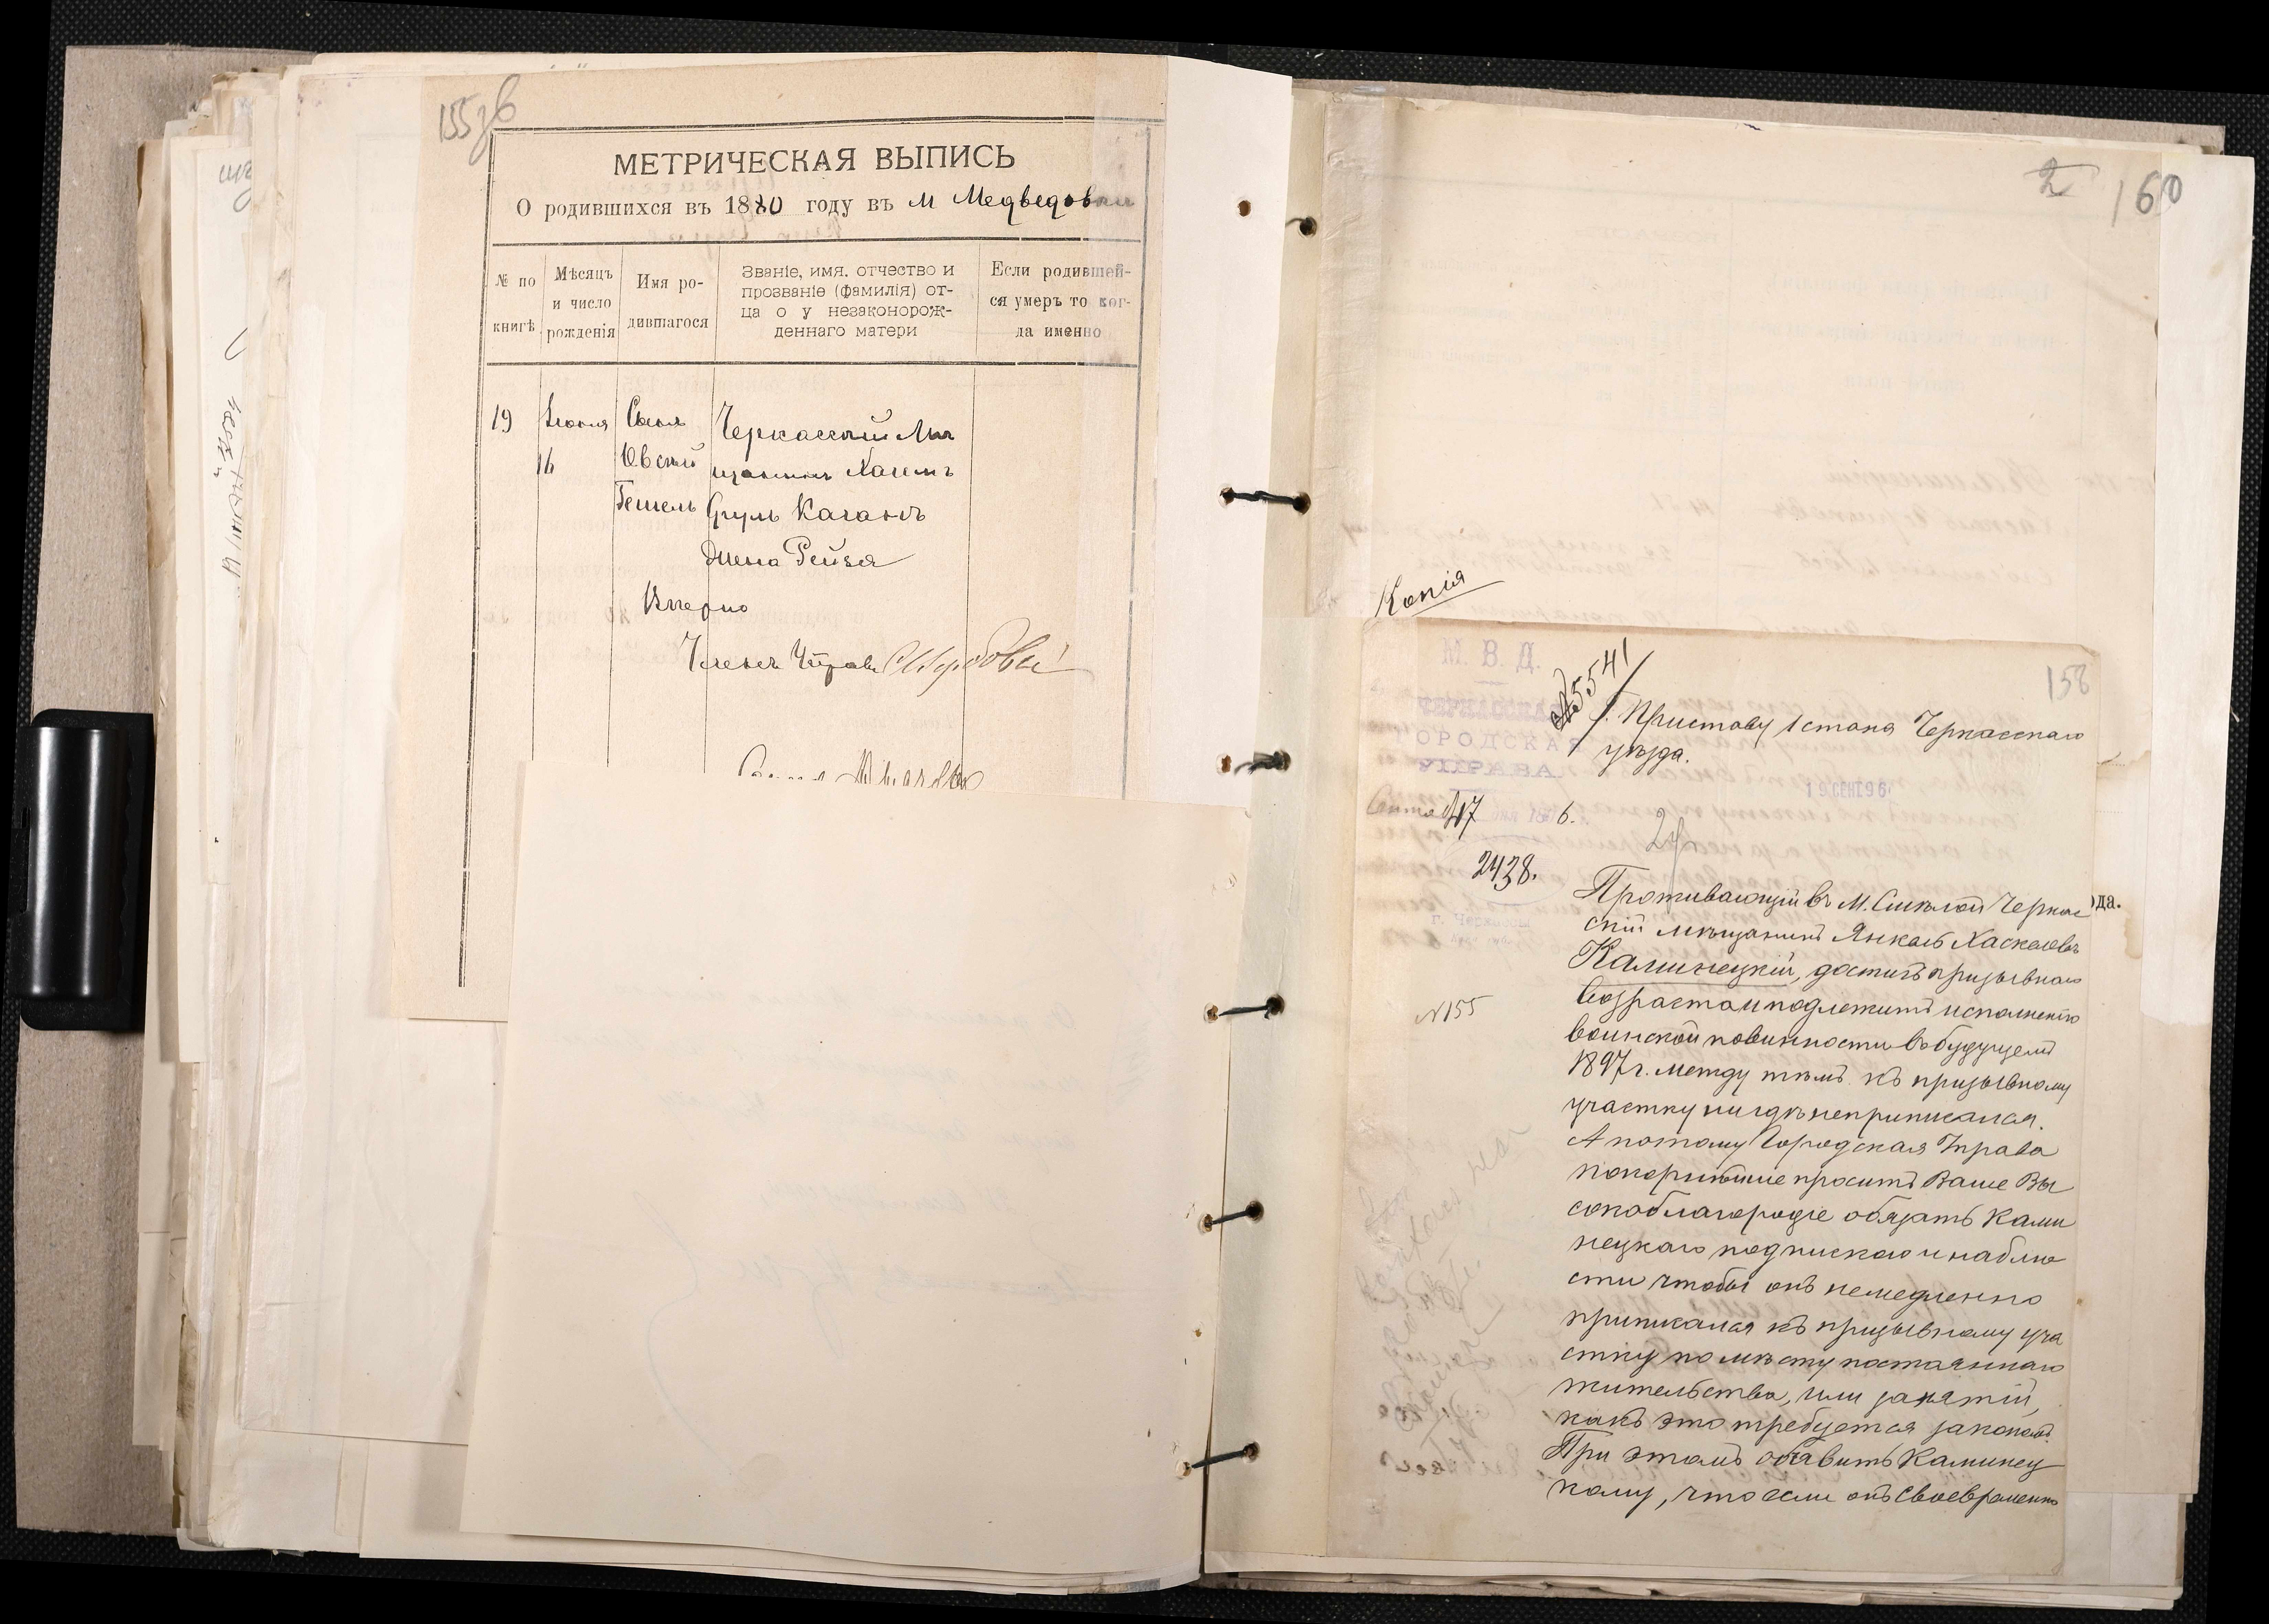 155зв
МЕТРИЧЕСКАЯ ВЫПИСЬ
О родившихся въ 1880 году въ м Медведовки
№ по книгѣ
Мѣсяцъ и число рожденія
Имя родившагося
Званіе, имя, отчество и
прозваніе (фамилія) от-
ца о у незаконорож-
деннаго матери
Если родившей-
ся умеръ то ког-
да именно
19 Іюня Сынъ Черкасскій Мѣ
16 Овсей щанинъ Хаимъ
Гешель Сруль Каганъ
жена Рейзя
Вѣрно
Членъ Управы
2
160
Копія
158
М. В. Д.
ЧЕРКАССКАЯ
ГОРОДСКАЯ
УПРАВА
17
6.
2438.
г. Черкассы
№155
№5541
Г. Приставу 1 стана Черкасскаго
уѣзда.
19 СЕН 96
Проживающій въ М. Смѣлой Черкас
скій мѣщанинъ Янкель Хаскелевъ
Каминецкій, достигъ призывнаго
возраста и подлежитъ исполненію
воинской повинности въ будущемъ
1897 г. между тѣмъ къ призывному
участку нигдѣ не приписался.
А потому Городская Управа
покорнѣйше проситъ Ваше Вы
сокоблагородіе обязать Ками
нецкаго подпискою и наблю
сти чтобы онъ немедленно
приписался къ призывному уча
стку по мѣсту постояннаго
жительства, или занятій,
какъ это требуется закономъ.
При этомъ объявить Каминец
кому, что если онъ своевременно
да.